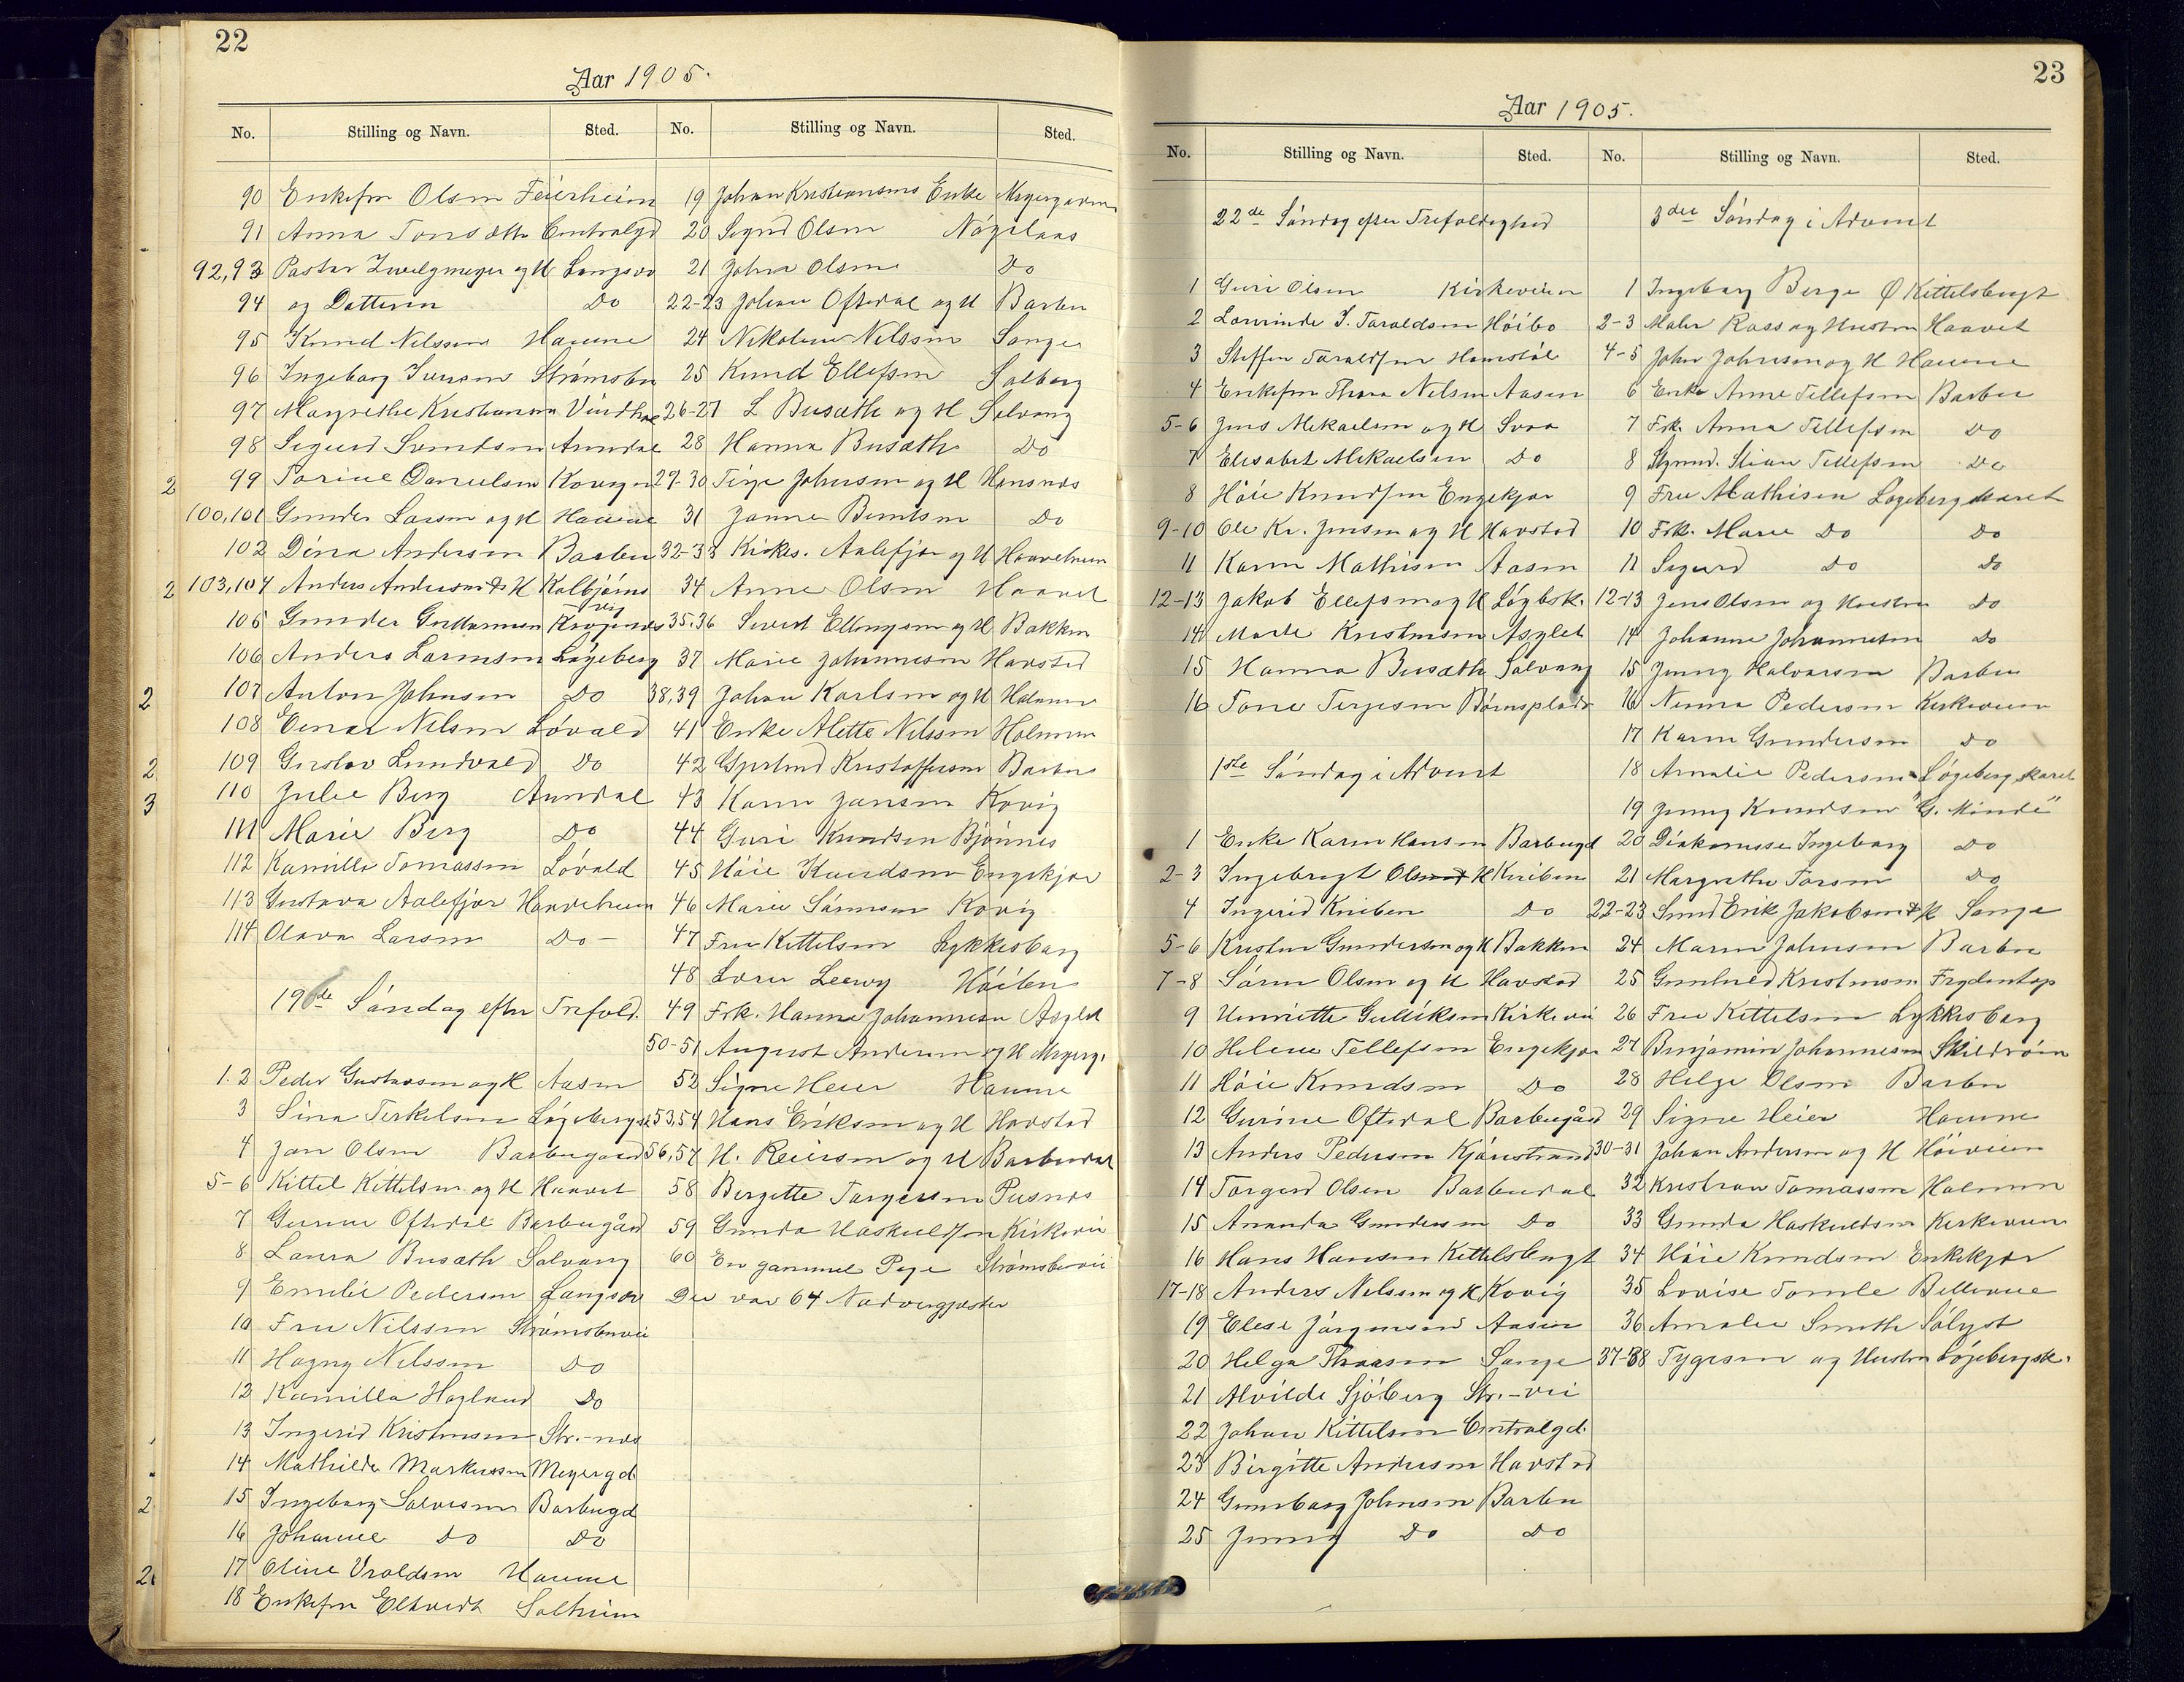 22
Aar 1905.
No. Stilling og Navn. Sted. No. Stilling og Navn. Sted.
90 Enkefru Olsen Feierheim
91 Anna Tons Centralgd
92,93 Pastor Zwilgmeyer og H Langsæ
94 og Datteren Do
95 Knud Nilssen Haune
96 Ingeborg Iversen Strømsbu
97 Margrethe Kristiansen
98 Sigurd Svendsen Arendal
99 Torine Danielsen
100,101 Gunder Larsen og H Haune
102 Dina Andersen Barbu
103,104 Anders Andersen & H Kolbjørns
vig
105 Gunder
106 Anders Larensen Løgeberg
107 Anton Johnsen Do
108 Einar Nilsen Løvold
109 Gustav Lundvald Do
110 Julie Berg Arendal
111 Marie Berg Do
112 Kamilla Tomassen Løvold
113 Gustava Aalefjær Haaveheim
114 Olava Larsen Do
19de Søndag efter Trefold.
1.2 Peder Gustavsen og H Aasen
3 Sina Terkelsen Løgebergsk
4 Jan Olsen Barbugaard
5-6 Kittel Kittelsen og H Haavet
7 Gurine Oftedal Barbugård
8 Laura Busæth Solvang
9 Emilie Pedersen Langsæ
10 Fru Nilssen Strømsbuvei
11 Hagny Nilssen Do
12 Kamilla Hagland Do
13 Ingerid Kristensen Str.-næs
14 Mathilde Markussen Meyergd.
15 Ingeborg Salvesen Barbugd
16 Johanne Do Do
17 Oline Vroldsen Haune
18 Enkefru Eltvedt Solheim
19 Johan Kristiansens Enke
20 Sigrid Olsen
21 John Olsen Do
22-23 Johan Oftedal og H Barbu
24 Nikoline Nilssen Songe
25 Knud Ellefsen Solberg
26-27 L Busæth og H Solvang
28 Hanna Busæth Do
29-30 Terje Johnsen og H Hansnæs
31 Janne Berntsen Do
32-33 Kirkes. Aalefjær og H Haaveheim
34 Anne Olsen Haavet
35.36 Sivert Ellingsen og H Bakken
37 Marie Johannesen Havstad
38,39 Johan Karlsen og H Holmen
41 Enke Mette Nilssen Holmen
42 Kristoffersen Barbu
43 Karen Jansen Kovig
44 Guri Knudsen Bjønnes
45 Høie Knudsen Engekjær
46 Marie Sørensen Kovig
47 Fru Kittelsen Lykkesborg
48 Leevy Høibo
49 Frk. Hanna Johannesen Asylet
50-51 August Andersen og H Meyerg.
52 Signe Heier Haune
53,54 Hans Eriksen og H Havstad
56,57 H. Reiersen og H Barbudal
58 Bergitte Torgersen Pusnæs
59 Gunda Haskuldsen Kirkevei
60 En gammel Pige Strømsbuvei
Der var 64 Nadvergjæster
2
2
2
2
3
2
2
23
Aar 1905.
No. Stilling og Navn. Sted. No. Stilling og Navn. Sted.
22de Søndag efter Trefoldighed
1 Guri Olsen Kirkeveien
2 Lovrinde J. Taraldsen Høibo
3 Steffen Taraldsen
4 Enkefru Thora Nilsen Aasen
5-6 Jens Mikaelsen og H Svaa
7 Elisabet Mikaelsen Do
8 Høie Knudsen Engekjær
9-10 Ole Kr. Jensen og H Havstad
11 Karen Mathisen Aasen
12-13 Jakob Ellefsen og H Løgbsk.
14 Marte Kristensen Asylet
15 Hanna Busæth Solvang
16 Tone Terjesen Bjørnsplads
1ste Søndag i Advent
1 Enke Karen Hansen Barbugd
2-3 Ingebrigt Olsen H Kniben
4 Ingerid Kniben Do
5-6 Kristen Gundersen og H Bakken
7-8 Søren Olsen og H Havstad
9 Henriette Gulliksen Kirkevei
10 Helene Tellefsen Engekjær
11 Høie Knudsen Do
12 Gurine Oftedal Barbugård
13 Anders Pedersen Kjønstrand
14 Torgerd Olsen Barbudal
15 Amanda Gundersen Do
16 Hans Hansen Kittelsbugt
17-18 Anders Nilssen og H Kovig
19 Elese Jørgensen Aasen
20 Helga Thoresen Songe
21 Alvilde Sjöberg Str.-vei
22 Johan Kittelsen Centralgd.
23 Birgitte Andersen Havstad
24 Gunnborg Johnsen Barbu
25 Jenny Do Do
3die Søndag i Advent
1 Ingeborg Berge Ø Kittelsbugt
2-3 Maler Rass og Hustru Haavet
4-5 John Johnsen og H Haune
6 Enke Anne Tellefsen Barbu
7 Frk. Anna Tellefsen Do
8 Tellefsen Do
9 Fru Mathisen Løgebergskaret
10 Frk. Marie Do Do
11 Sigurd Do Do
12-13 Jens Olsen og Hustru Do
14 Johanne Johannesen Do
15 Jenny Halvorsen Barbu
16 Nenna Pedersen Kirkeveien
17 Karen Gundersen Do
18 Amalie Pedersen Løgebergskaret
19 Jenny Knudsen "G. Minde"
20 Diakonisse Ingeborg Do
21 Margrethe Torsen Do
22-23 Smed Erik Jakobsen & H Songe
24 Maren Johnsen Barbu
25 Gunhild Kristensen Frydentop
26 Fru Kittelsen Lykkesborg
27 Benjamin Johannesen
28 Helge Olsen Barbu
29 Signe Heier Haune
30-31 Johan Andersen og H Høiveien
32 Kristian Tomassen Holmen
33 Gunda Haskuldsen Kirkeveien
34 Høie Knudsen Enkekjær
35 Lovise Tomle Bellevue
36 Amalie Smith Sølyst
37-38 Tygesen og Hustru Løjebergsk.